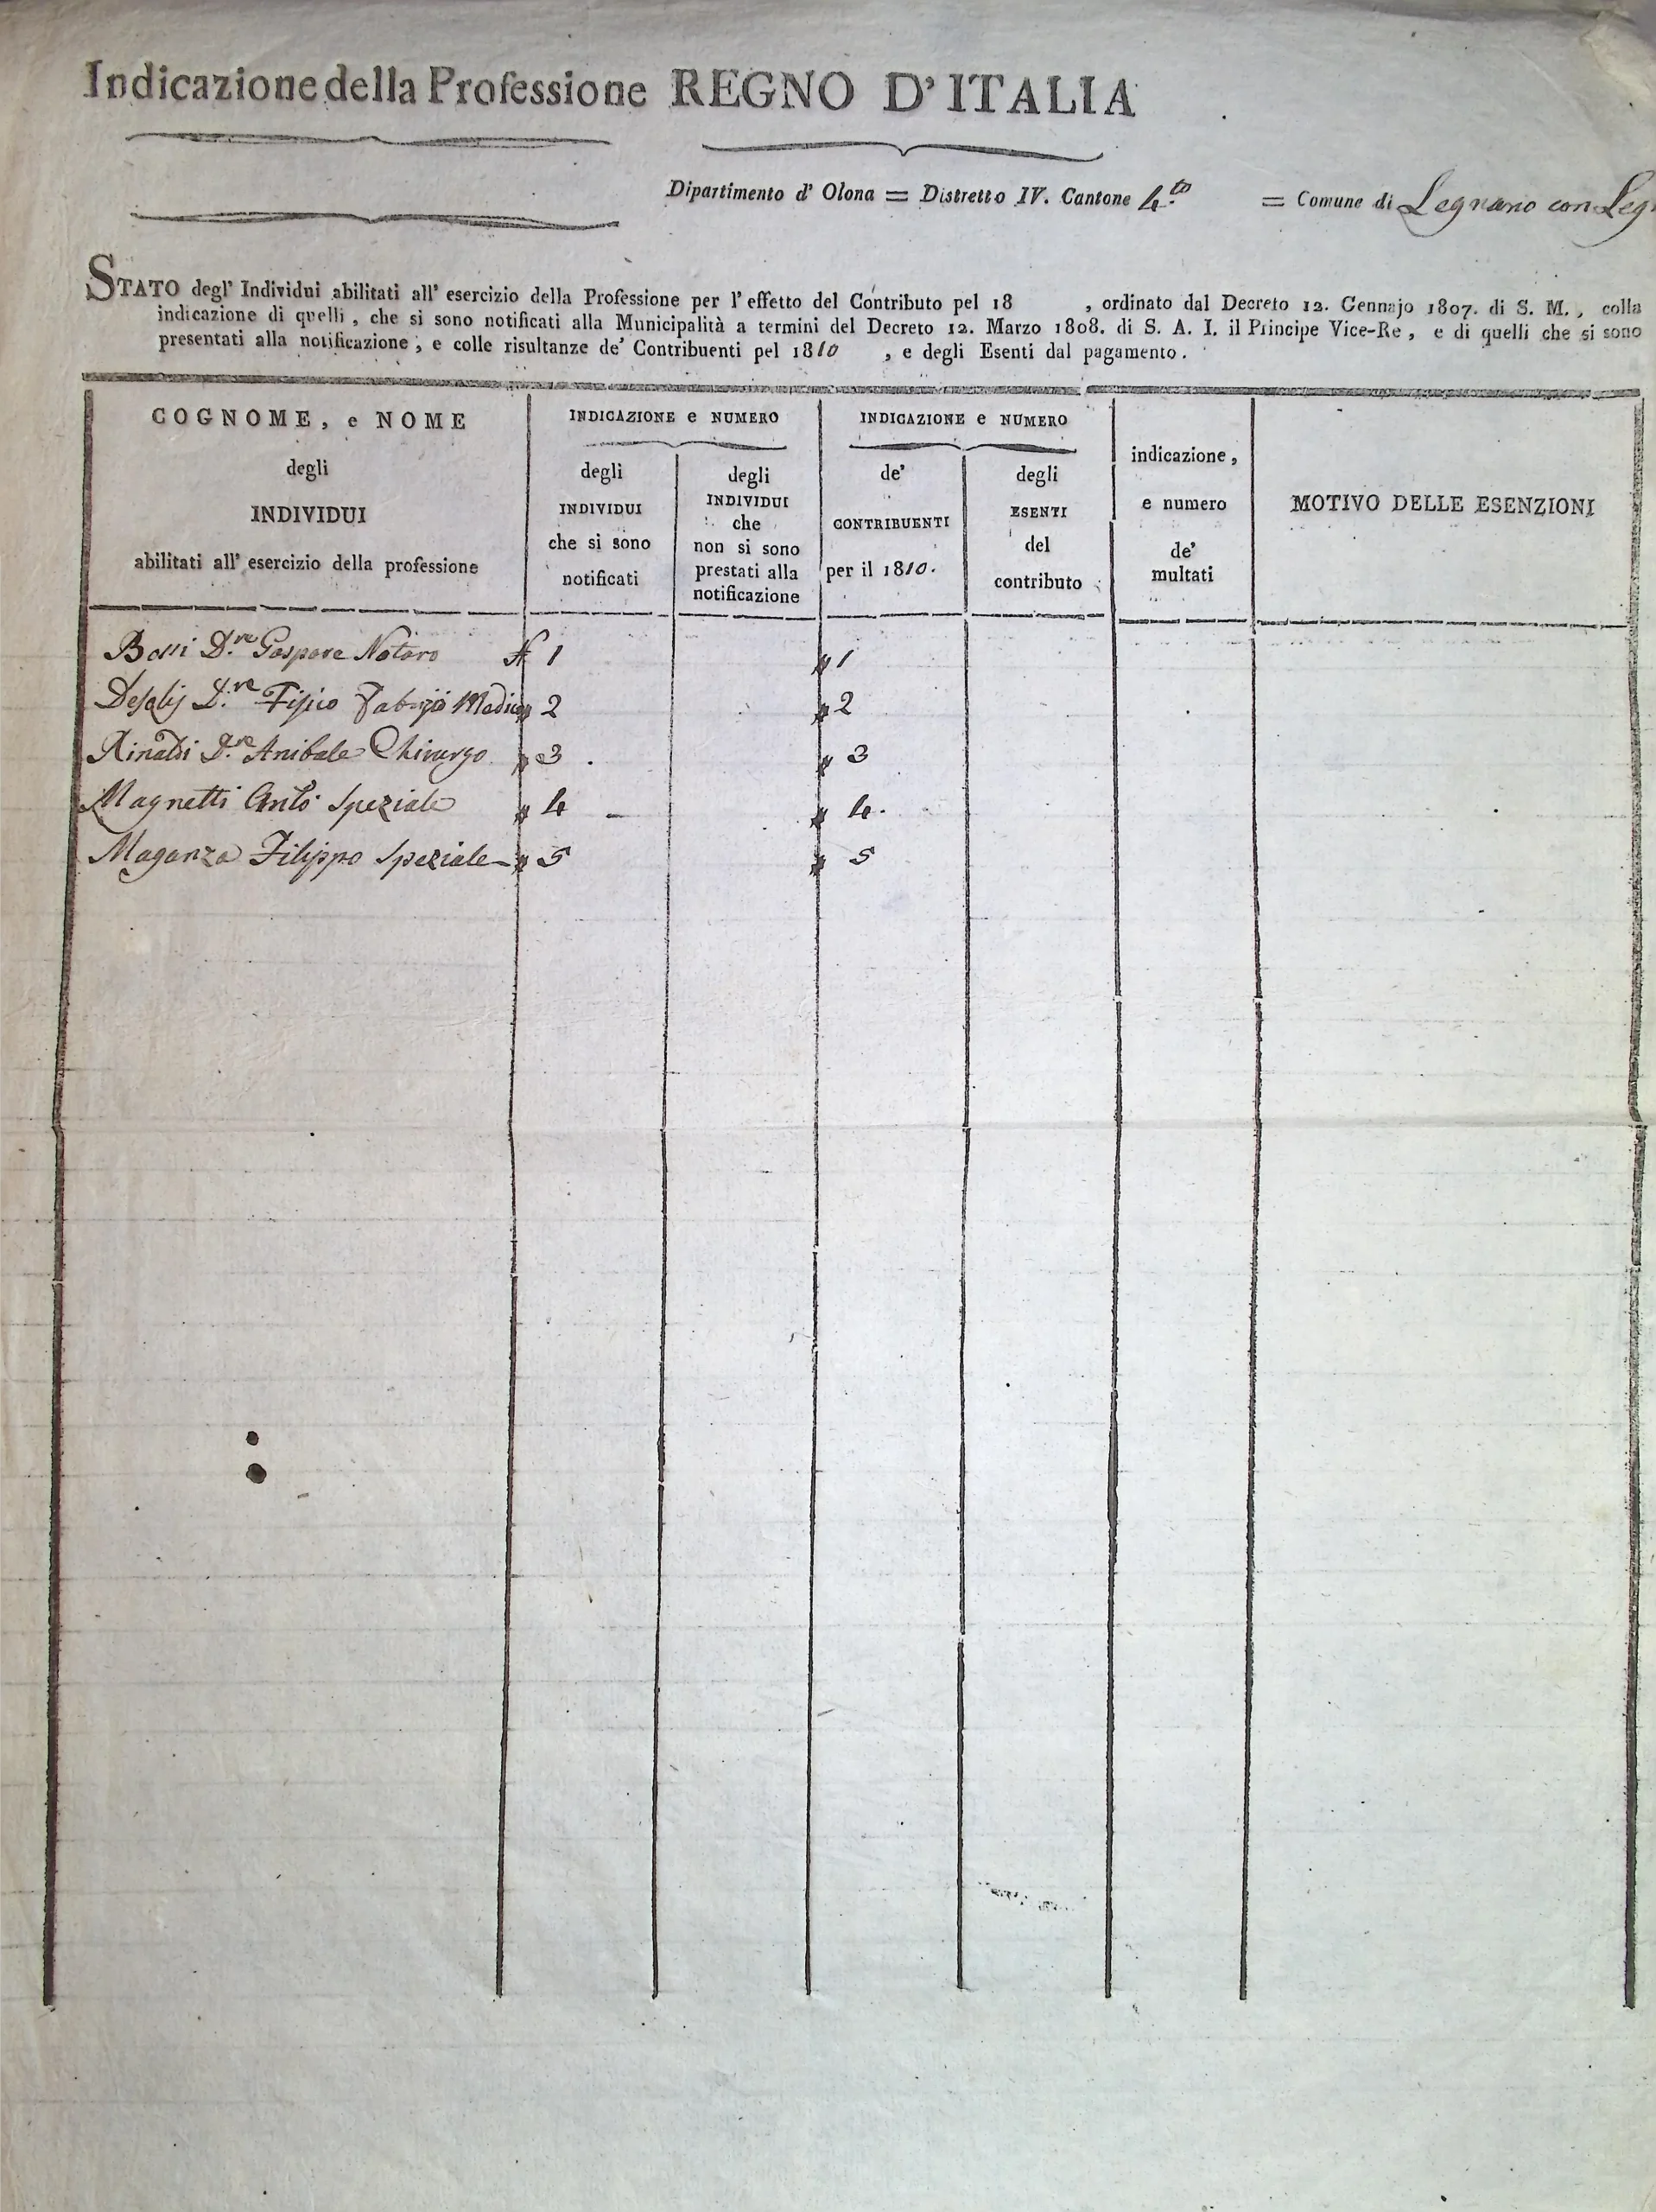 Indicazione della Professione REGNO D'ITALIA
Dipartimento d' Olona = Distretto IV. Cantone 4.to = Comune di Legnano con Leg
STATO degl' Individui abilitati all' esercizio della Professione per l' effetto del Contributo pel 18 , ordinato dal Decreto 12. Gennajo 1807. di S. M., colla
indicazione di quelli, che si sono notificati alla Municipalità a termini del Decreto 12. Marzo 1808. di S. A. I. il Principe Vice-Re, e di quelli che si sono
presentati alla notificazione; e colle risultanze de' Contribuenti pel 1810 , e degli Esenti dal pagamento.
COGNOME, e NOME
degli
INDIVIDUI
abilitati all' esercizio della professione
INDICAZIONE e NUMERO
degli
INDIVIDUI
che si sono
notificati
degli
INDIVIDUI
che
non si sono
prestati alla
notificazione
INDICAZIONE e NUMERO
de'
CONTRIBUENTI
per il 1810.
degli
ESENTI
del
contributo
indicazione,
e numero
de'
multati
MOTIVO DELLE ESENZIONI
Bossi D.re Gaspare Notaro N 1 " 1
D.re Fisico Medico " 2 " 2
Rinaldi D.re Anibale Chirurgo " 3 . " 3
Magnetti Anto. Speziale " 4 " 4.
Maganza Filippo Speziale " 5 " 5